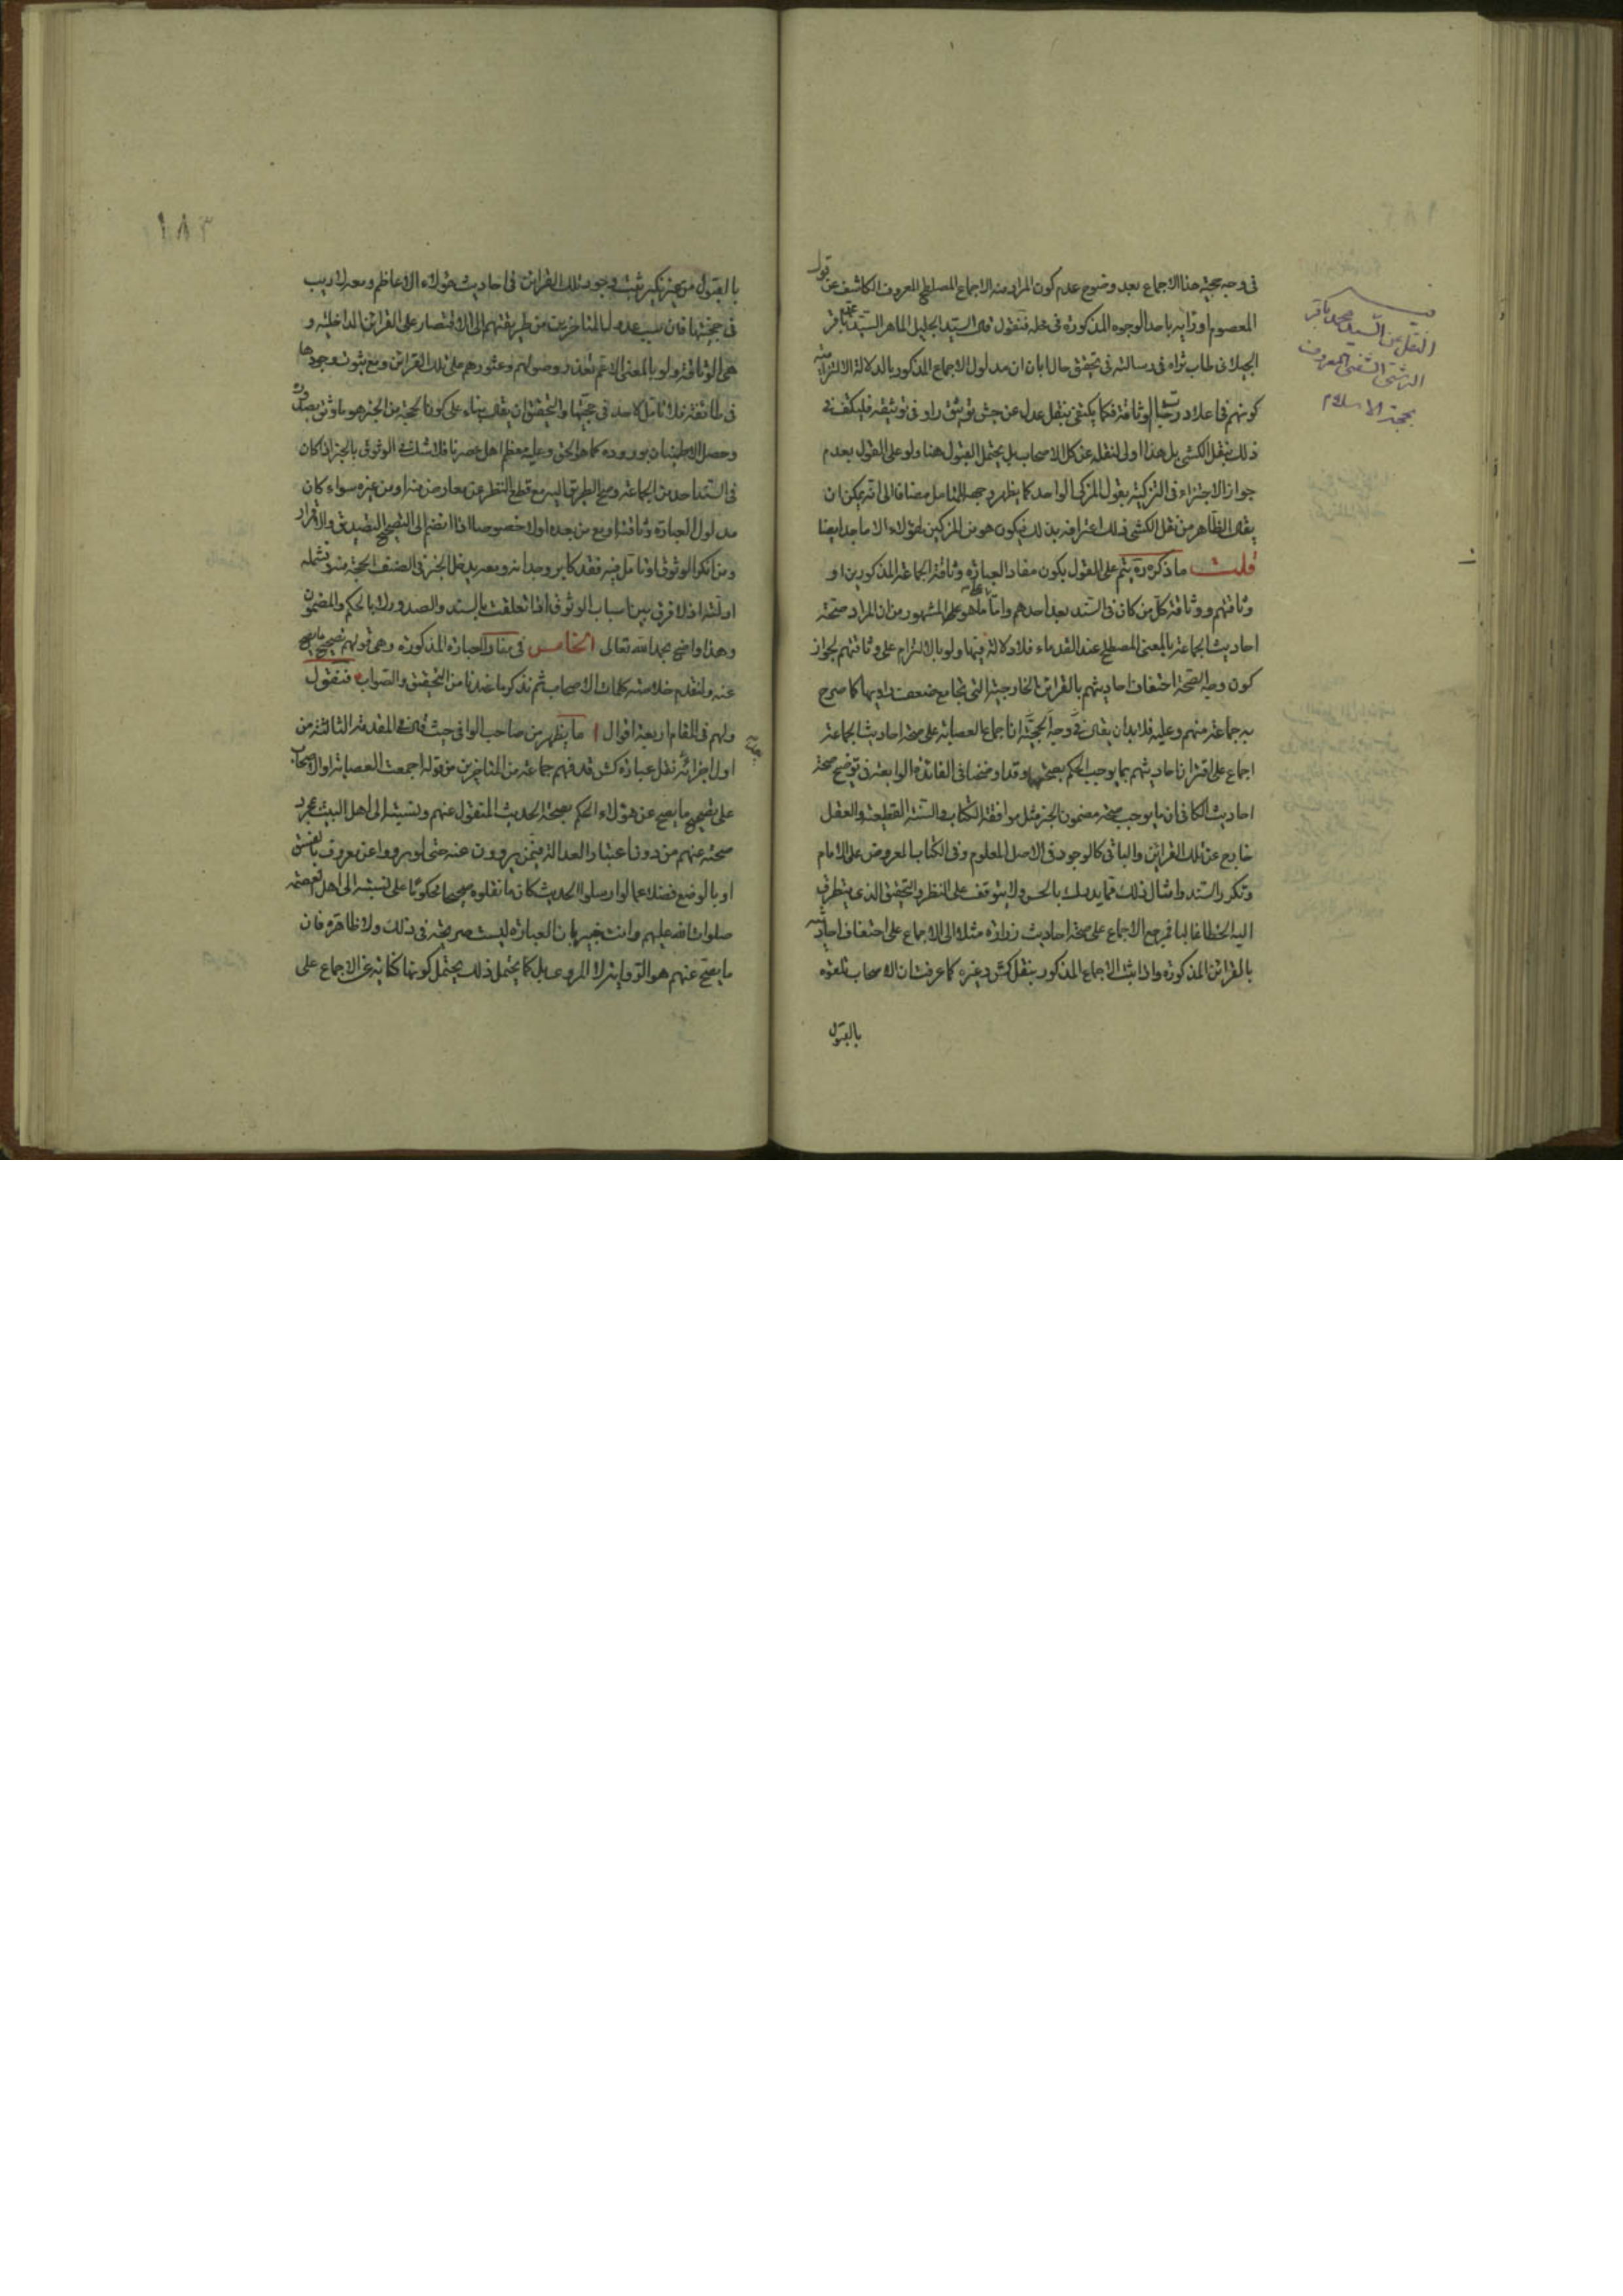 في وجه حجية هذا الاجماع بعد وضوح عدم كون المراد منه الاجماع المصطلح المعروف الكاشف عن قول
المعصوم او رأيه باحد الوجوه المذكورة في محله فنقول قال السيد الجليل الماهر السيد محمد باقر
الجيلاني طاب ثراه في رسالته في تحقيق حال ابان ان مدلول الاجماع المذكور بالدلالة الالتزامية
كونهم في اعلا درجات الوثاقة فكما يكتفى بنقل عدل عن جش توثيق راو في توثيقه فليكتف في
ذلك بنقل الكشي بل هذا اولى لنقله عن كل الاصحاب بل يحتمل القبول هنا ولو على القول بعدم
جواز الاجتزاء في التزكية بقول المزكي الواحد كما يظهر وجهه للمتامل مضافا الى انه يمكن ان
يقال الظاهر من نقل الكشي ذلك اعترافه بذلك فيكون هو من المزكين لهؤلاء الاماجد ايضا
قلت ما ذكره ره يتم على القول بكون مفاد العبارة وثاقة الجماعة المذكورين او
وثاقتهم ووثاقة كل من كان في السند بعد احدهم واما بناء على ما هو المشهور من ان المراد صحة
احاديث الجماعة بالمعنى المصطلح عند القدماء فلا دلالة فيها ولو بالالتزام على وثاقتهم لجواز
كون وجه الصحة احتفاف احاديثهم بالقرائن الخارجية التي تجامع ضعف راويها كما صرح
به جماعة منهم وعليه فلا بد ان يقال في وجه الحجية ان اجماع العصابة على صحة احاديث الجماعة
اجماع على اقتران احاديثهم بما يوجب الحكم بصحتها وقد اوضحنا في الفائدة الرابعة في توضيح صحة
احاديث الكافي ان ما يوجب صحة مضمون الخبر مثل موافقة الكتاب والسنة القطعية والعقل
خارج عن تلك القرائن والباقي كالوجود في الاصل المعلوم وفي الكتاب المعروض على الامام
وتكرر السند وامثال ذلك مما يدرك بالحس ولا يتوقف على النظر والتحقيق الذي يتطرق
اليه الخطا غالبا فمرجع الاجماع على صحة احاديث زرارة مثلا الى الاجماع على احتفاف احاديثه
بالقرائن المذكورة واذا ثبت الاجماع المذكور بنقل كش وغيره كما عرفت ان الاصحاب تلقوه
بالقبول
النقل عن السيد محمد باقر
الرشتي الشفتي المعروف
بحجة الاسلام
١٨٣
بالقبول من غير نكير ثبت وجود تلك القرائن في احاديث هؤلاء الاعاظم ومعه لا ريب
في حجيتها فان سبب عدول المتاخرين من طريقتهم الى الاقتصار على القرائن الداخلية و
هي الوثاقة ولو بالمعنى الاعم تعذر وصولهم وعثورهم على تلك القرائن ومع ثبوت وجودها
في طائفة فلا تامل لاحد في حجيتها والتحقيق ان يقال بناء على كون الحجة من الخبر هو ما وثق بصدوره
وحصل الاطمينان بوروده كما هو الحق وعليه معظم اهل عصرنا فلا شك في الوثوق بالخبر اذا كان
في السند احد من الجماعة وصح الطريق اليه مع قطع النظر عن معارض منه او من غيره سواء كان
مدلول العبارة وثاقته او مع من بعده او لا خصوصا اذا انضم الى التصحيح التصديق والاقرار
ومن انكر الوثوق او تامل فيه فقد كابر وجدانه ومعه يدخل الخبر في الصنف الحجة منه وتشمله
ادلته اذ لا فرق بين اسباب الوثوق اذا تعلقت بالسند والصدور لا بالحكم والمضمون
وهذا واضح بحمد الله تعالى الخامس في مفاد العبارة المذكورة وهي قولهم تصحيح ما يصح
عنه ولنقدم خلاصة كلمات الاصحاب ثم نذكر ما عندنا من التحقيق والصواب فنقول
ولهم في المقام اربعة اقوال ا ما يظهر من صاحب الوافي حيث قال في المقدمة الثالثة من
اول اجزائه بعد نقل عبارة كش قد فهم جماعة من المتاخرين من قوله اجمعت العصابة او الاصحاب
على تصحيح ما يصح عن هؤلاء الحكم بصحة الحديث المنقول عنهم ونسبته الى اهل البيت بمجرد
صحته عنهم من دون اعتبار العدالة فيمن يروون عنه حتى لو رووا عن معروف بالفسق
او بالوضع فضلا عما لو ارسلوا الحديث كان ما نقلوه صحيحا محكوما على نسبته الى اهل العصمة
صلوات الله عليهم وانت خبير بان العبارة ليست صريحة في ذلك ولا ظاهرة فان
ما يصح عنهم هو الرواية لا المروي بل كما يحتمل ذلك يحتمل كونها كناية عن الاجماع على